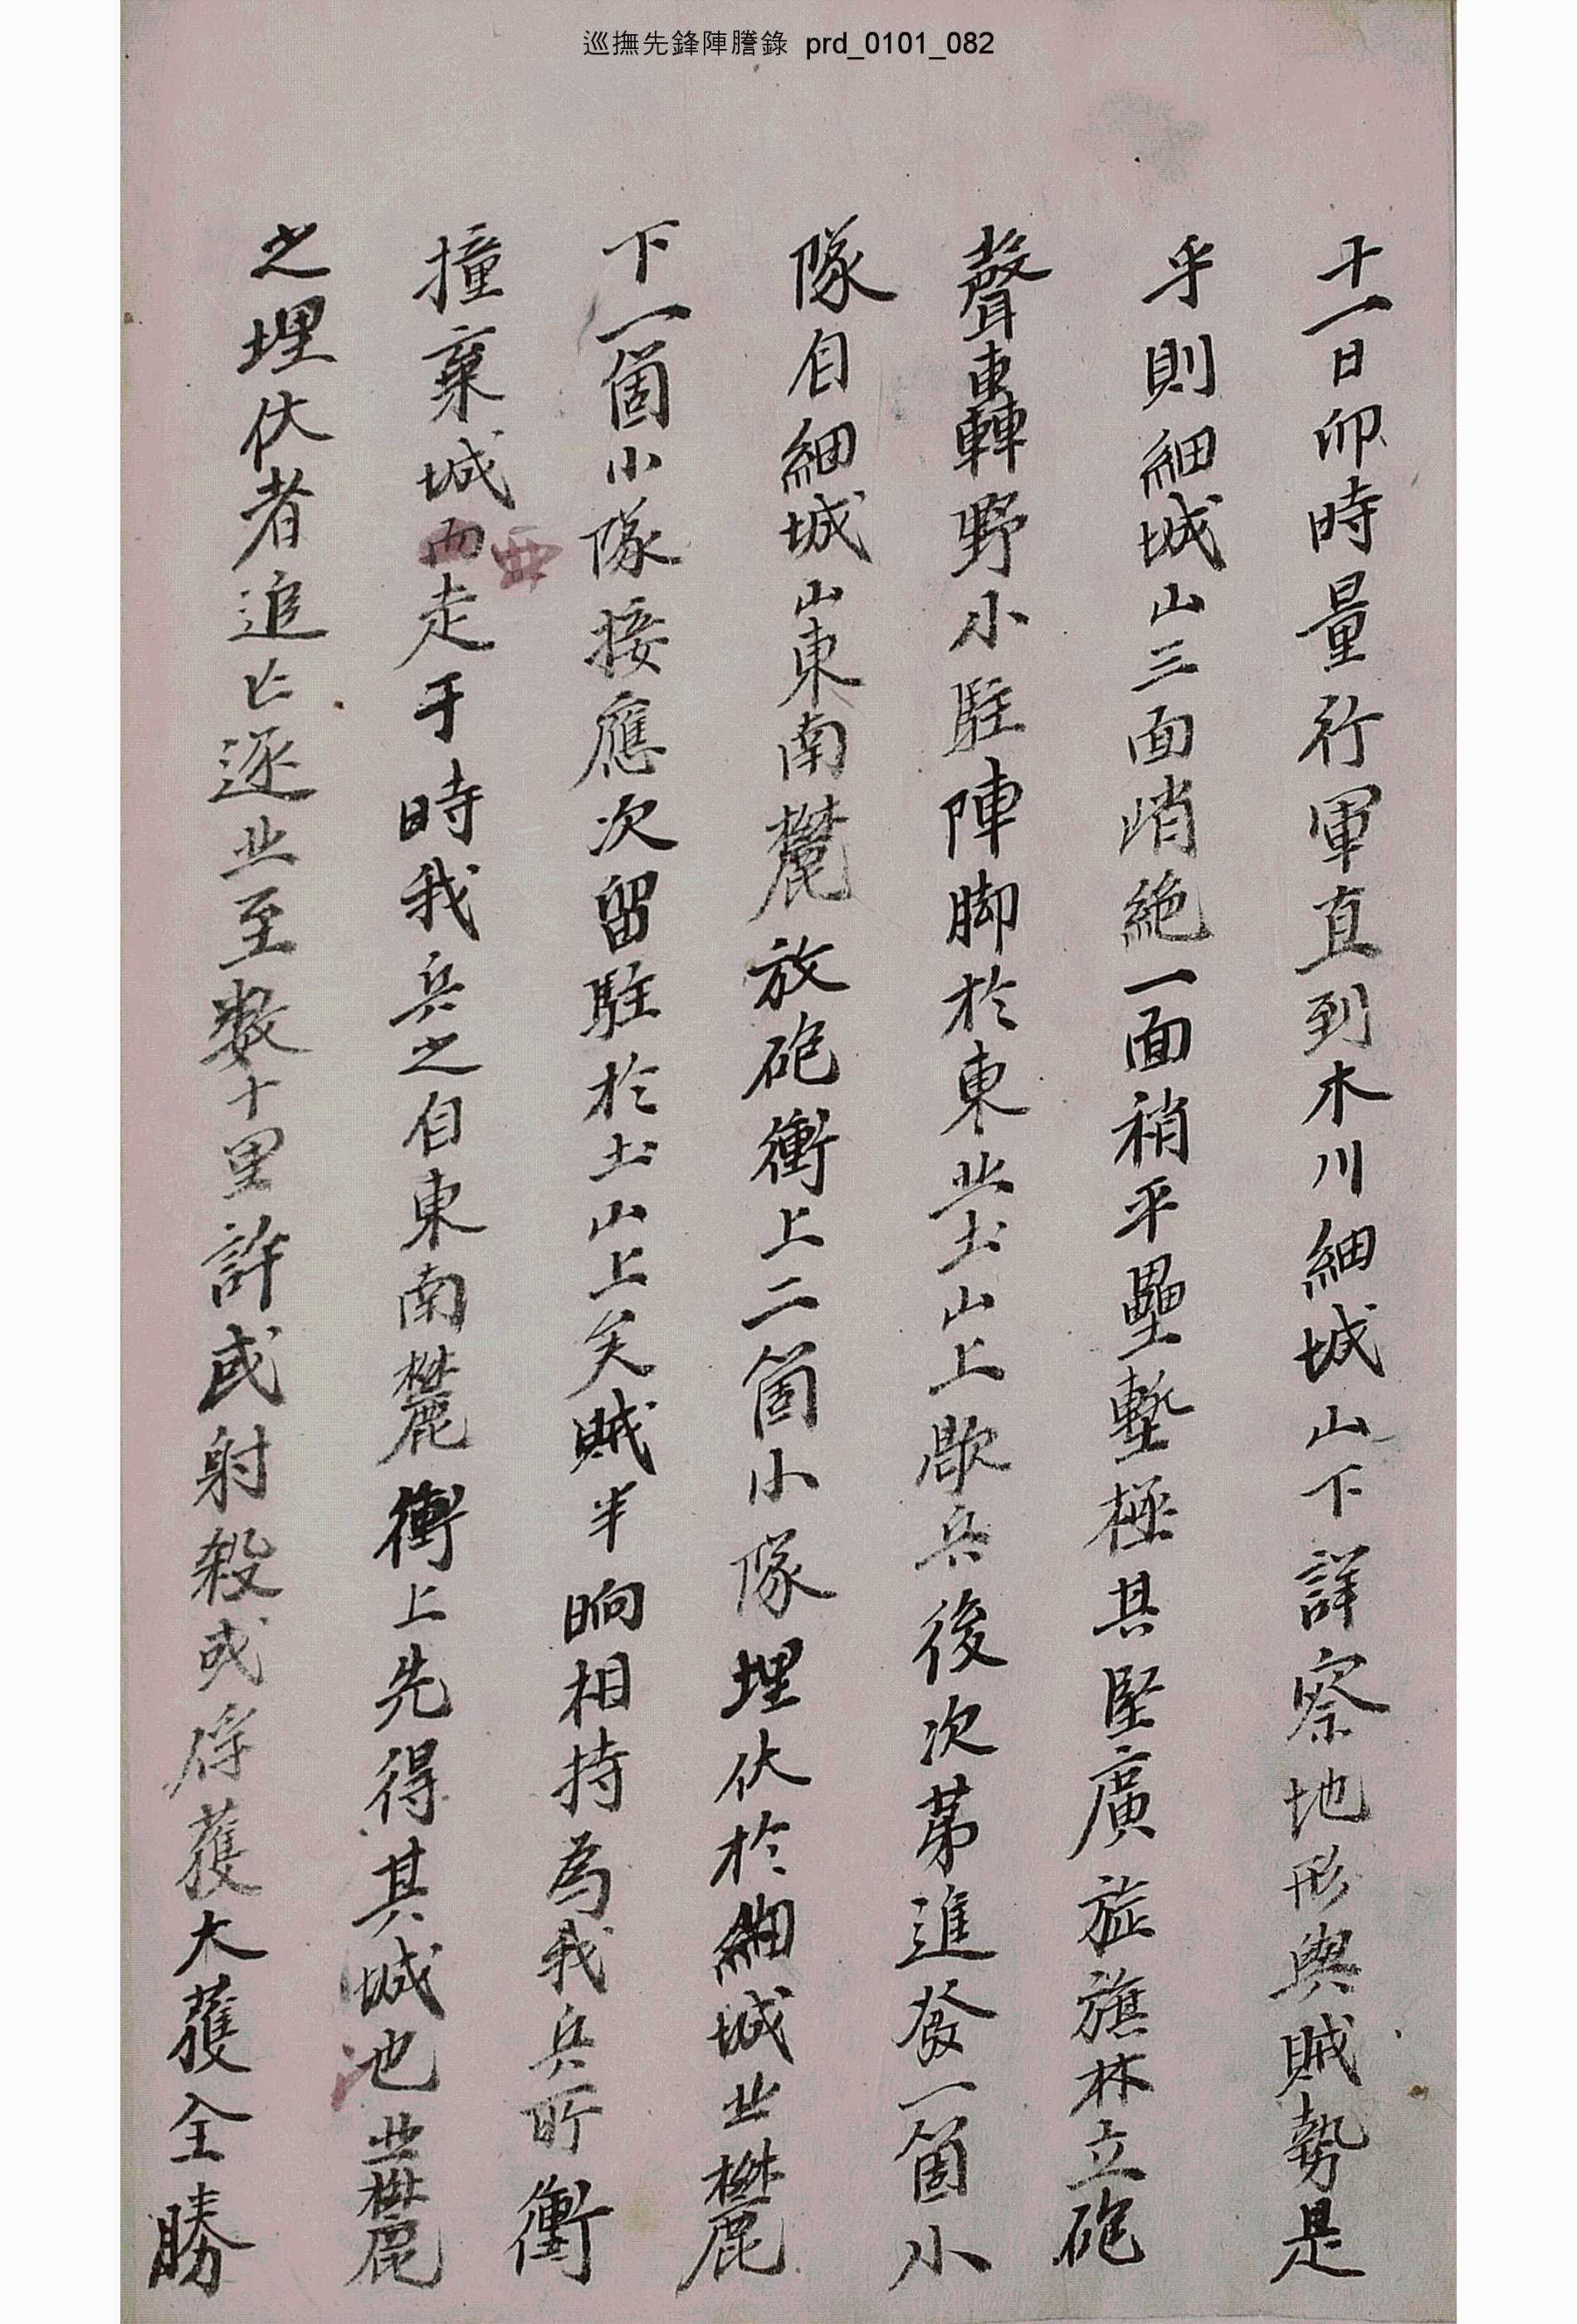 巡撫先鋒陣謄錄 prd_0101_082
十一日卯時量行軍直到木川細城山下詳察地形與賊勢是
乎則細城山三面峭絶一面稍平壘塹極其堅廣旌旗林立砲
聲轟野小駐陣脚於東北土山上歇兵後次苐進發一箇小
隊自細城山東南麓放砲衝上二箇小隊埋伏於細城北麓
下一箇小隊接應次留駐於土山上矣賊半晌相持爲我兵所衝
撞棄城而走于時我兵之自東南麓衝上先得其城池北麓
之埋伏者追亡逐北至数十里許或射殺或俘獲大獲全勝